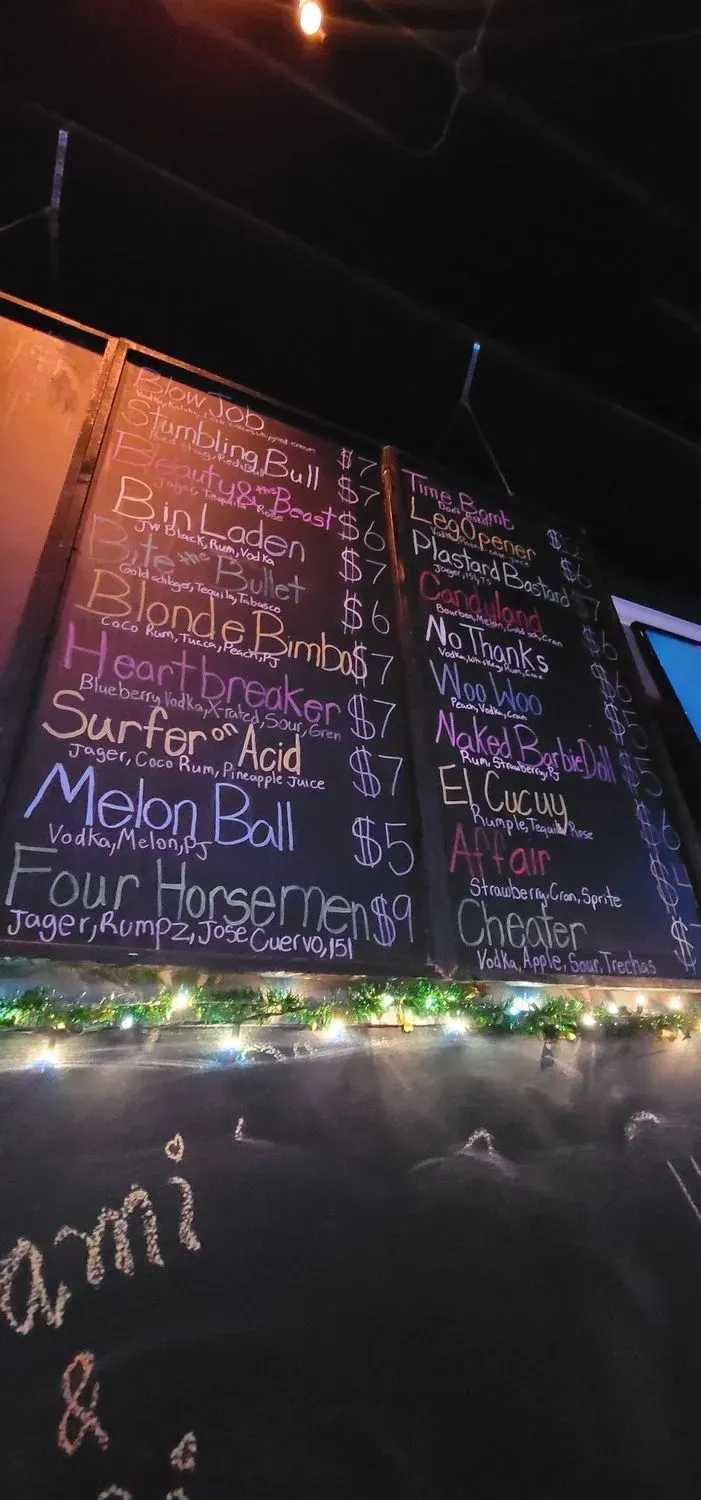 Blow Job
$7
Stumbling Bull
$7
Beauty & the Beast
Jager, Tequila Rose
$6
Bin Laden
JW Black, Rum, Vodka
$7
Bite the Bullet
Goldschlager, Tequila, Tabasco
$6
Blonde Bimbo
Coco Rum, Tucca, Peach, PJ
$7
Heartbreaker
Blueberry Vodka, X-rated, Sour, Gren
$7
Surfer on Acid
Jager, Coco Rum, Pineapple Juice
$7
Melon Ball
Vodka, Melon, PJ
$5
Four Horsemen
Jager, Rumpz, Jose Cuervo, 151
$9
Time Bomb
Leg Opener
$6
Plastard Bastard
Jager, 151, TS
7
Candyland
Bourbon, Melon, Cran
$6
No Thanks
Vodka, Whiskey, Rum, Cran
$6
Woo Woo
Peach, Vodka, Cran
$5
Naked Barbie Doll
Rum, Strawberry, PJ
$5
El Cucuy
Rumple, Tequila Rose
$6
Affair
Strawberry, Cran, Sprite
$
Cheater
Vodka, Apple, Sour, Trechas
$
ami
&